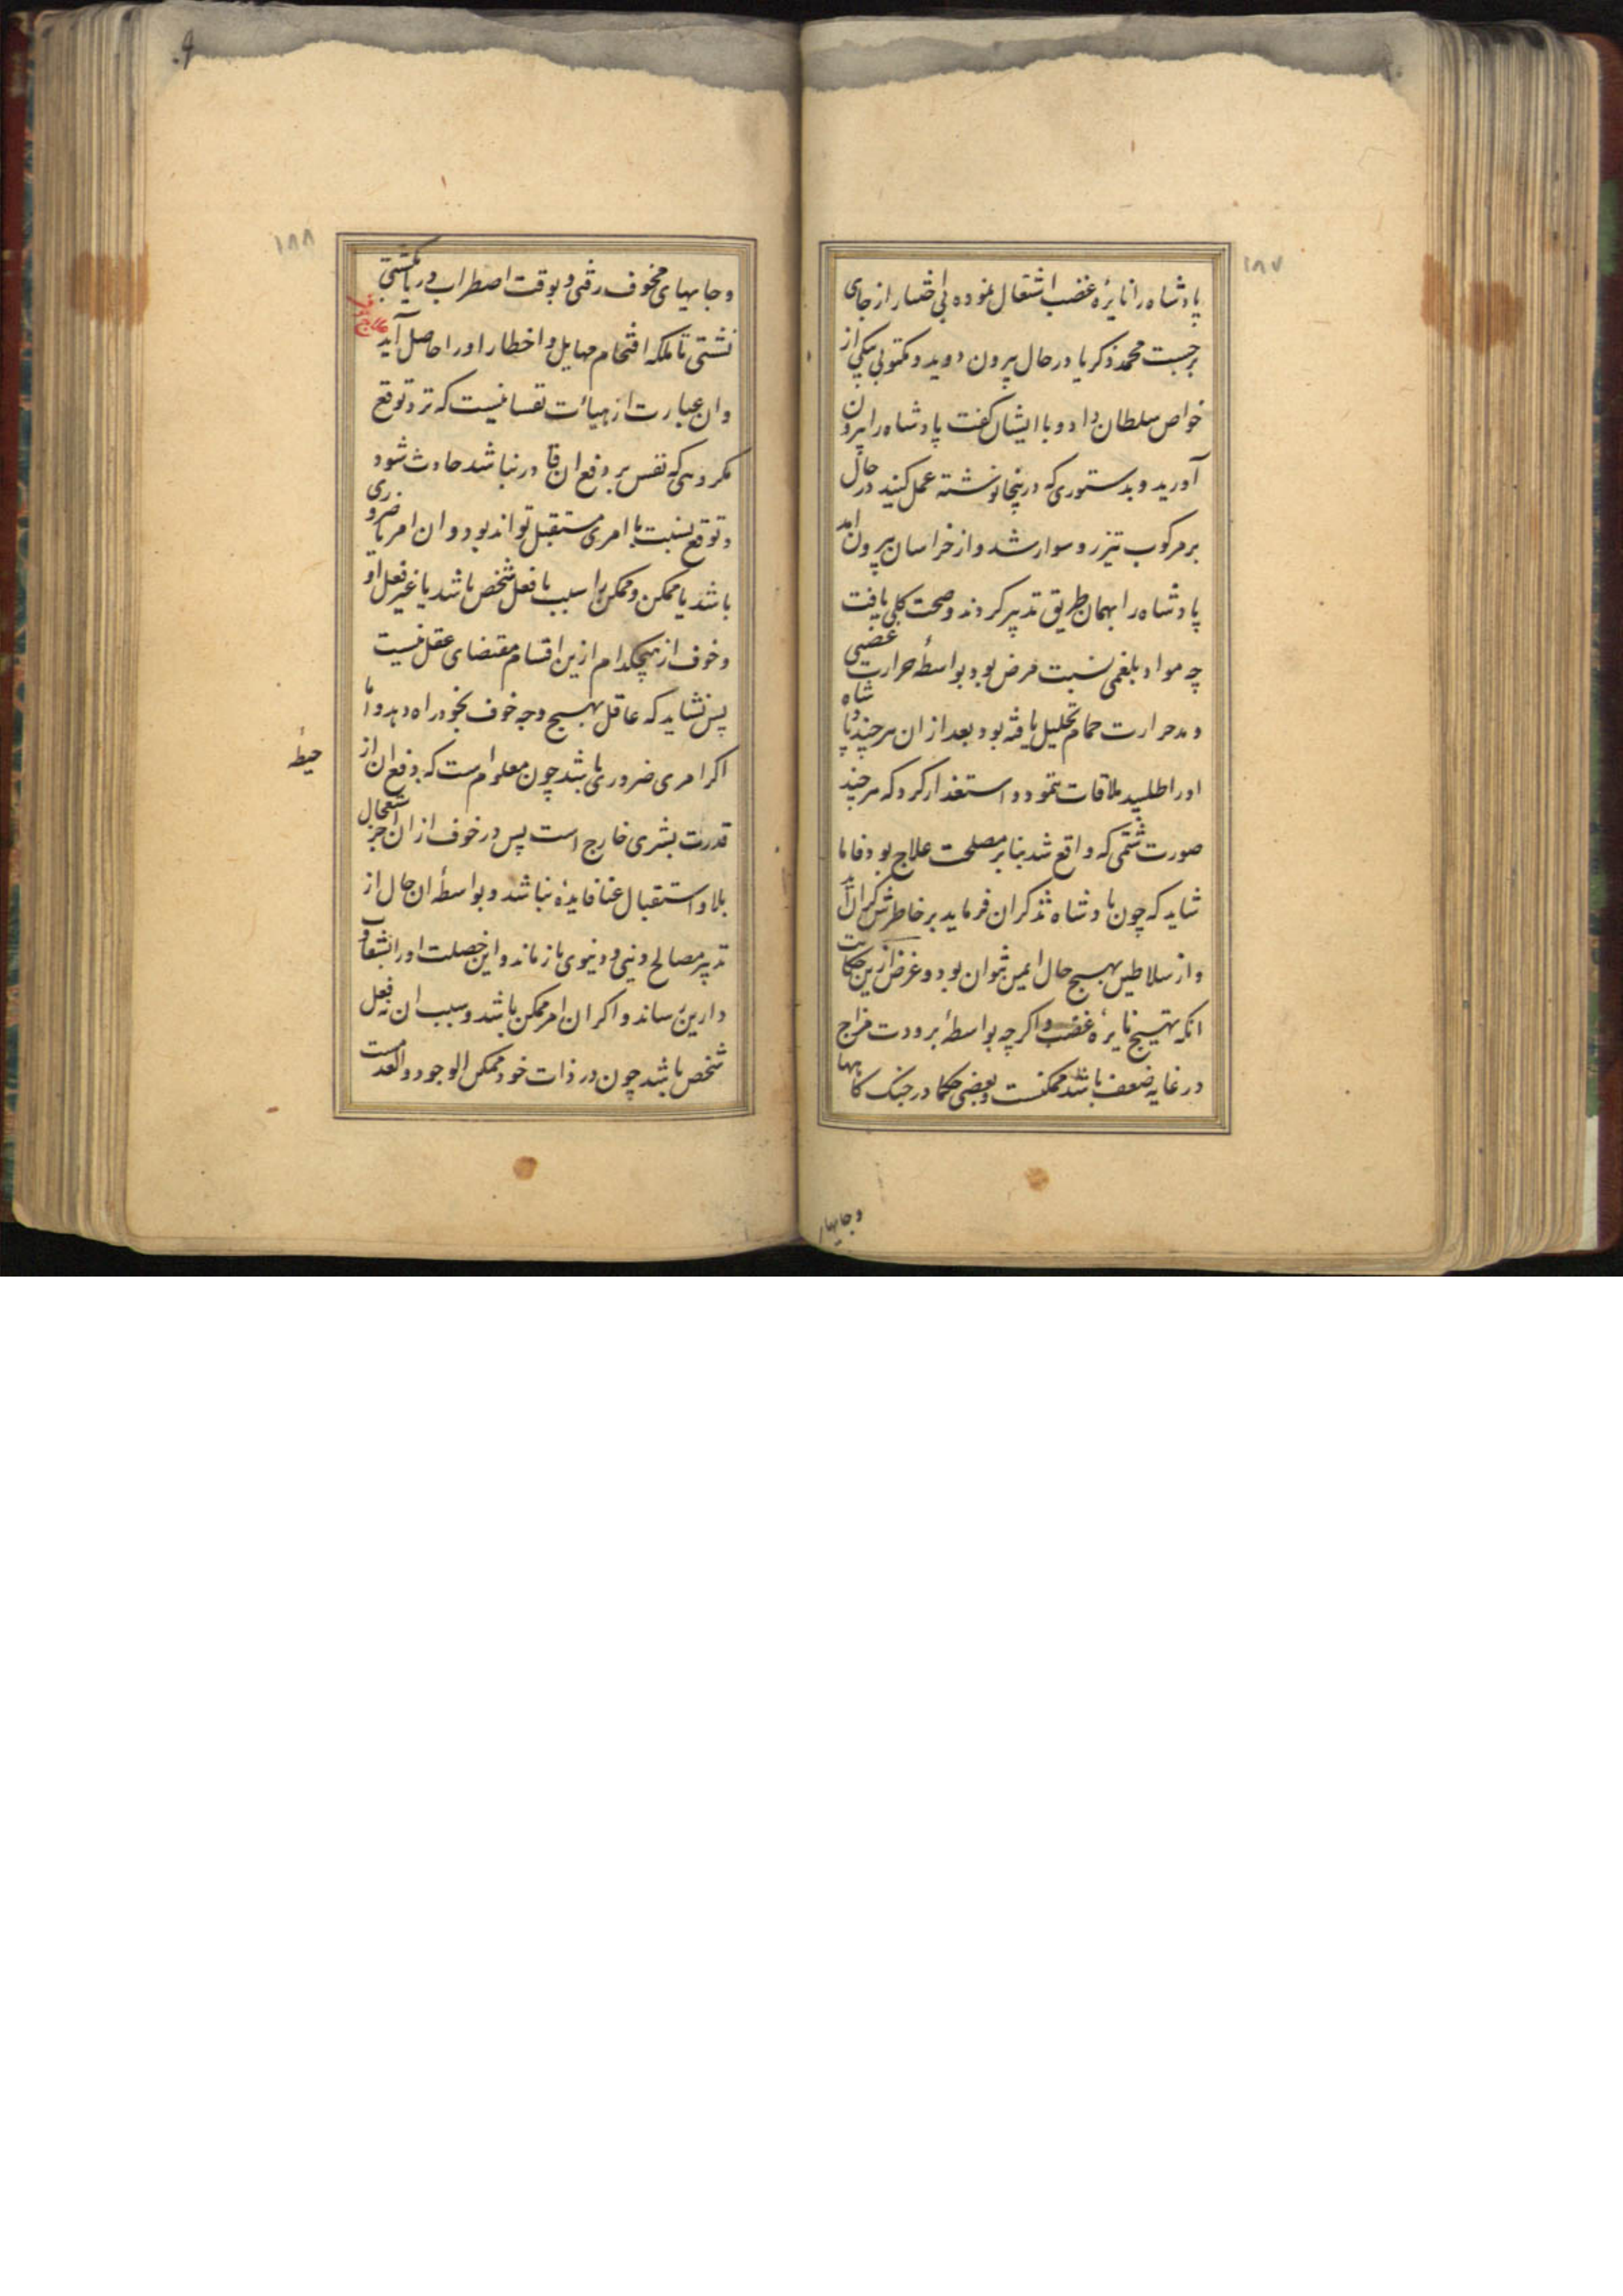 ۱۸۷
پادشاه را نایرهٔ غضب اشتعال نموده بی اختیار از جای
برجست محمد ذکریا در حال بیرون دوید و مکتوبی بیکی از
خواص سلطان داد و با ایشان کفت پادشاه را بیرون
آورید و بدستوری که درینجا نوشته عمل کنید در حال
بر مرکوب تیزرو سوار شد و از خراسان بیرون آمد
پادشاه را بهمان طریق تدبیر کردند و صحت کلی یافت
چه مواد بلغمی نسبت مرض بود بواسطهٔ حرارت غضبی
و مدد حرارت حمام تحلیل یافته بود بعد از آن هر چند پادشاه
او را طلبید ملاقات ننمود و استعذار کرد که هر چند
صورت شتمی که واقع شد بنا بر مصلحت علاج بود فاما
شاید که چون پادشاه تذکر ان فرماید بر خاطرش کران آید
و از سلاطین بهیچ حال ایمن نتوان بود و غرض ازین حکایت
انکه تهییج نایرهٔ غضب واکرچه بواسطهٔ برودت مزاج
در غایه ضعف باشد ممکنست و بعضی حکما در جنک کاهها
وجایها
۱۸۸
و جایهای مخوف رفتی و بوقت اضطراب دریا بکشتی
نشستی تا ملکه اقتحام مهایل و اخطار او را حاصل آید
علاج خوف
و ان عبارت از هیأت نفسانیست که نزد توقع
مکروهی که نفس بر دفع ان قادر نباشد حادث شود
و توقع نسبت با امری مستقبل تواند بود و ان امر یا ضروری
باشد یا ممکن و ممکن را سبب یا فعل شخص باشد یا غیر فعل او
و خوف از هیچکدام ازین اقسام مقتضای عقل نیست
پس نشاید که عاقل بهیچ وجه خوف بخود راه دهد و اما
اکر امری ضروری باشد چون معلوم است که دفع ان از
حیطهٔ
قدرت بشری خارج است پس در خوف از ان جز استعجال
بلا و استقبال عنا فایدهٔ نباشد و بواسطهٔ ان حال از
تدبیر مصالح دینی و دنیوی باز ماند و این خصلت او را بشقاوت
دارین رساند و اکر ان امر ممکن باشد و سبب ان نه فعل
شخص باشد چون در ذات خود ممکن الوجود والعدمست